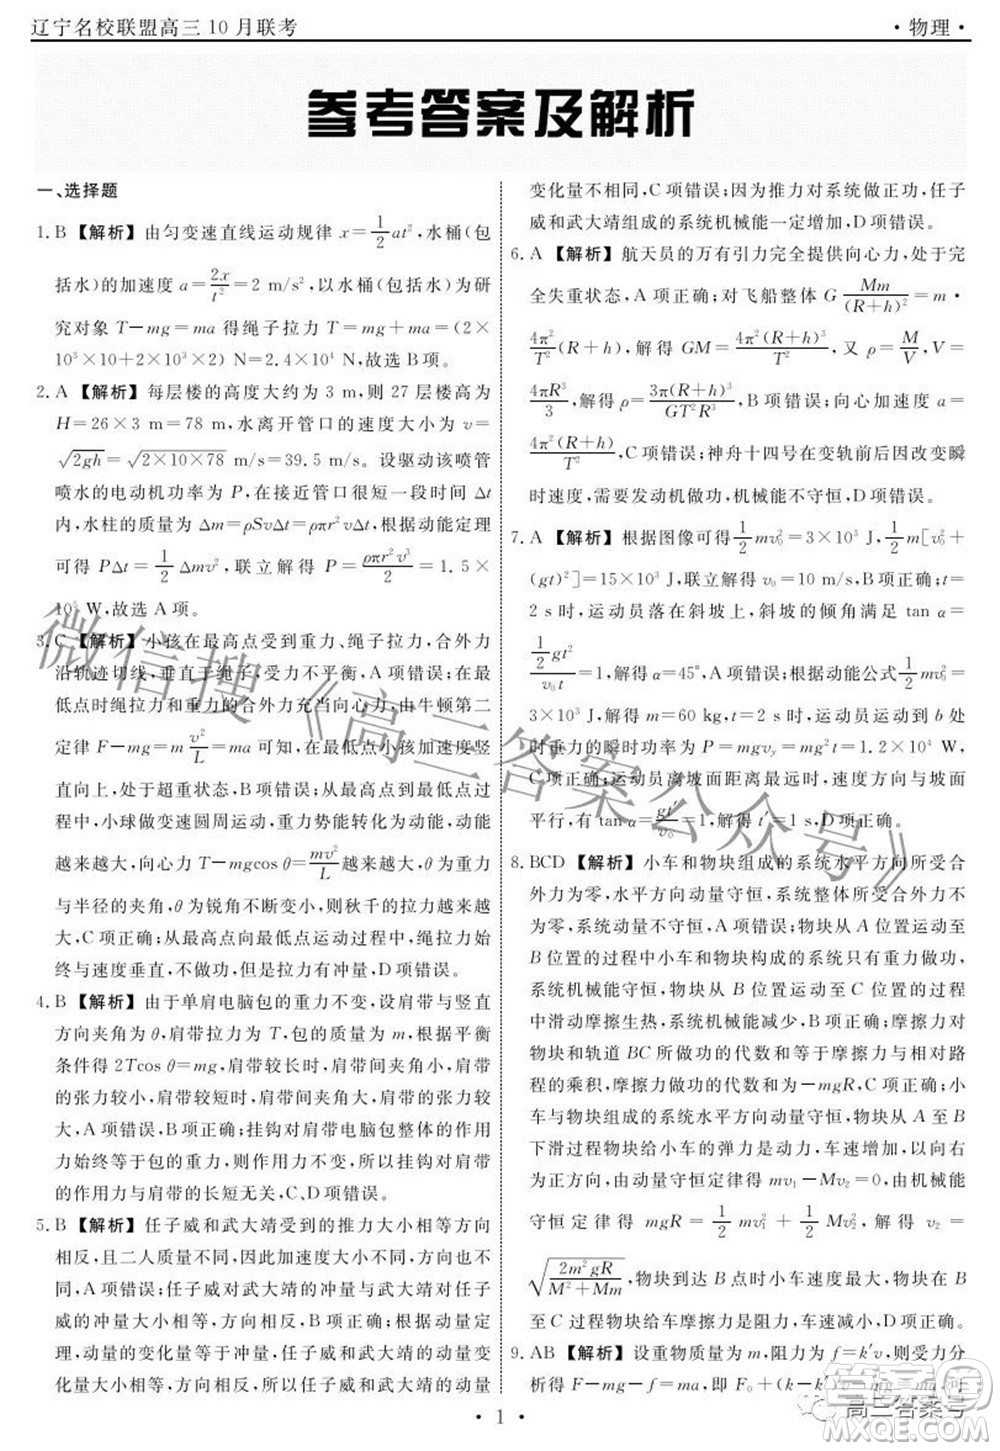 辽宁名校联盟高三10月联考
·物理·
参考答案及解析
一、选择题
1. B 【解析】由匀变速直线运动规律 x=\frac{1}{2}at²,水桶(包
括水)的加速度 a=\frac{2x}{t²}=2 m/s²,以水桶(包括水)为研
究对象 T－mg=ma 得绳子拉力 T=mg+ma=(2×
10³×10+2×10³×2) N=2.4×10⁴ N,故选 B 项。
2. A 【解析】每层楼的高度大约为 3 m,则 27 层楼高为
H=26×3 m=78 m,水离开管口的速度大小为 v=
\sqrt{2gh}=\sqrt{2×10×78} m/s=39.5 m/s。设驱动该喷管
喷水的电动机功率为 P,在接近管口很短一段时间 Δt
内,水柱的质量为 Δm=ρSvΔt=ρπr²vΔt,根据动能定理
可得 PΔt=\frac{1}{2}Δmv²,联立解得 P=\frac{ρπr²v³}{2}=1.5×
10⁵ W,故选 A 项。
3. C 【解析】小孩在最高点受到重力、绳子拉力,合外力
沿轨迹切线,不等于零,受力不平衡,A 项错误;在最
低点时绳拉力和重力的合外力充当向心力,由牛顿第二
定律 F－mg=m\frac{v²}{L}=ma 可知,在最低点小孩加速度竖
直向上,处于超重状态,B 项错误;从最高点到最低点
中,小球做变速圆周运动,重力势能转化为动能,动能
越来越大,向心力 T－mgcos θ=\frac{mv²}{L}越来越大,θ 为重力
与半径的夹角,θ 逐渐变小,则秋千的拉力越来越
大,C 项正确;从最高点到最低点运动过程中,绳拉力始
终与速度垂直,不做功,但拉力有冲量,D 项错误。
4. B 【解析】由于单肩电脑包的重力不变,设肩带与竖直
方向夹角为 θ,肩带拉力为 T,包的质量为 m,根据平衡
条件得 2Tcos θ=mg,肩带较长时,肩带的夹角小,肩带
的张力较小,肩带较短时,肩带的夹角大,肩带的张力
较大,A 项错误,B 项正确;挂钩对肩带电脑包整体的力
始终等于包的重力,大小不变,所以,挂钩对肩带的力
与肩带的长短无关,C、D 项错误。
5. B 【解析】任子威和武大靖受到的推力大小相等方向
相反,且二人质量不同,因此加速度大小不同,方向相
反,A 项错误;任子威对武大靖的冲量与武大靖对任子
威的冲量大小相等,方向相反,B 项正确;根据动量定
理,动量的变化量等于合外力的冲量,所以动量变化量
大小相等,任子威和武大靖质量不同,动能变化量
变化量不相同,C 项错误;因为推力对系统做正功,任子
威和武大靖组成的系统机械能一定增加,D 项错误。
6. A 【解析】航天员的万有引力完全提供向心力,处于
完全失重状态,A 项正确;对飞船整体 G\frac{Mm}{(R+h)²}=m·
\frac{4π²}{T²}(R+h),解得 GM=\frac{4π²(R+h)³}{T²},又 ρ=\frac{M}{V},V=
\frac{4πR³}{3},解得 ρ=\frac{3π(R+h)³}{GT²R³},B 项错误;向心加速度 a=
\frac{4π²(R+h)}{T²},C 项错误;神舟十四号在变轨前后改变瞬
时速度,需要发动机做功,机械能不守恒,D 项错误。
7. A 【解析】根据图像可得\frac{1}{2}mv₀²=3×10³ J,\frac{1}{2}m[v₀²+
(gt)²]=15×10³ J,联立解得 v₀=10 m/s,A 项错误;t=
2 s时,运动员落在斜坡上,斜坡的倾角满足 tan α=
\frac{\frac{1}{2}gt²}{v₀t}=1,解得 α=45°,B 项错误;根据动能公式\frac{1}{2}mv₀²=
3×10³J,解得 m=60 kg,t=2 s时,运动员运动到 b 处
时重力的瞬时功率为 P=mgv_y=mg²t=1.2×10⁴ W,
C 项正确;运动员离坡面距离最远时,速度方向与坡面
平行,有 tan α=\frac{gt′}{v₀}=1,解得 t′=1 s,D 项正确。
8. BCD 【解析】小车和物块组成的系统水平方向所受合
外力为零,水平方向动量守恒,竖直方向所受合外力不为
零,系统动量不守恒,A 项错误;物块从A 位置运动至B
位置过程中,小车和物块构成的系统只有重力做功,
系统机械能守恒,物块从 B 位置运动至 C 位置的过程
中滑动摩擦生热,系统机械能减少,B 项正确;摩擦力对
物块和轨道 BC 所做功的代数和等于摩擦力与相对路
程的乘积,摩擦力做功的代数和为－mgR,C 项正确;小
车与物块构成的系统水平方向动量守恒,物块从A至B
下滑过程物块给小车的弹力是动力,车速增加,以向右
为正方向,由动量守恒定律得 mv₁－Mv₂=0,由机械能
守恒定律得 mgR=\frac{1}{2}mv₁²+\frac{1}{2}Mv₂²,解得 v₂=
\sqrt{\frac{2m²gR}{M²+Mm}},物块到达 B 点时小车速度最大,物块在 B
至 C 过程给小车的摩擦力是阻力,车速减小,D 项正确。
9. AB 【解析】设重物质量为 m,阻力为 f=k′v,则受力分
析得 F－mg－f=ma,即 F₀+
·1·
微信搜《高三答案公众号》
高三答案号